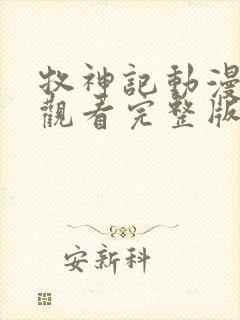 牧神記動漫
觀看完整版
安新科